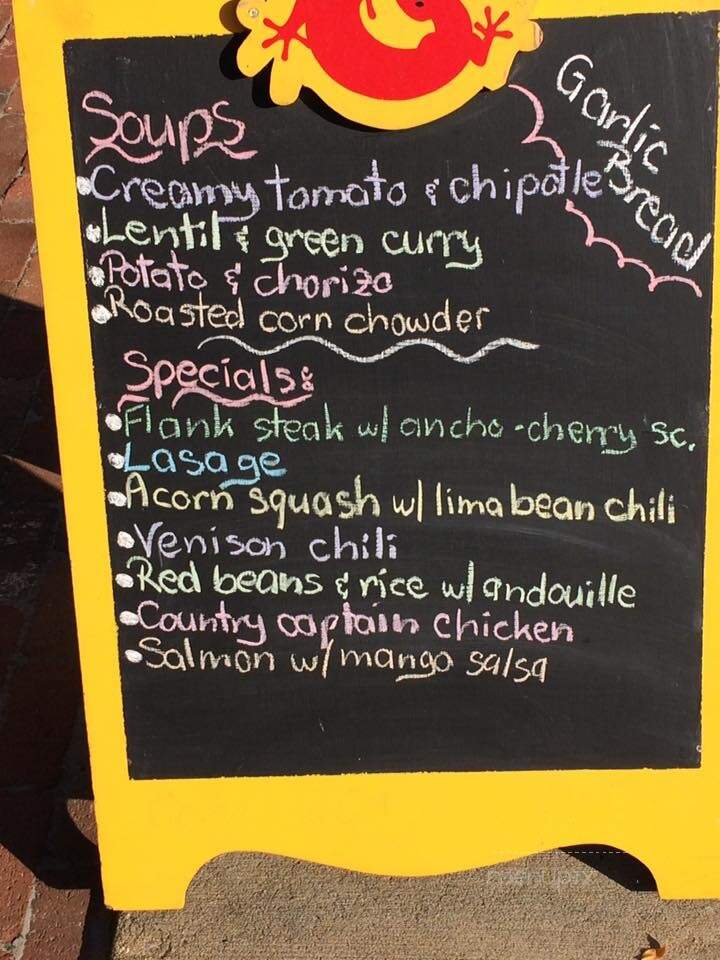 Soups
Garlic
Bread
•Creamy tomato & chipotle
•Lentil & green curry
•Potato & chorizo
•Roasted corn chowder
Specials:
•Flank steak w/ ancho-cherry sc.
•Lasage
•Acorn squash w/ lima bean chili
•Venison chili
•Red beans & rice w/ andouille
•Country captain chicken
•Salmon w/ mango salsa